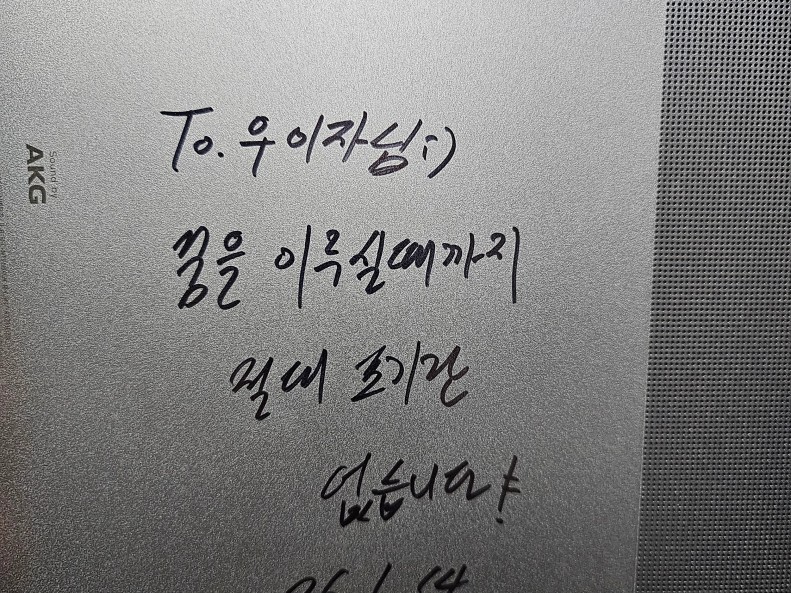 To. 우이자님 :)
꿈을 이루실때까지
절대 포기란
없습니다!
26. 1. 14
Sound by
AKG